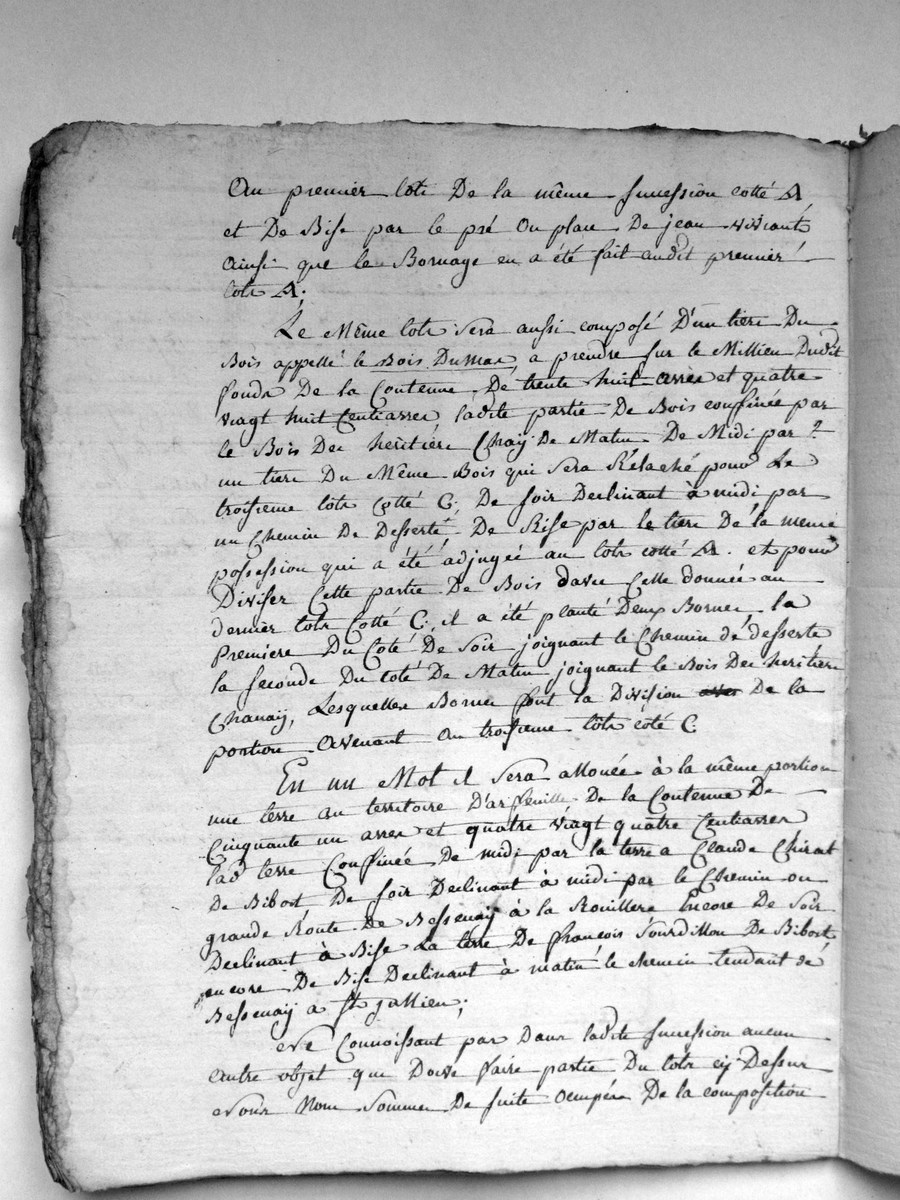 Au premier lots De la même sucession cotté A
et De Bise par le pré ou plan De jean viviant
ainsi que le Bornage en a été fait audit premier
lots A.
Le Même lots sera aussi composé D'un tiers Du
Bois appellé le Bois Dumas, a prendre sur le Millieu Dudit
fonds De la Contenue De trente huit arres et quatre
vingt huit Centiarres, ladte partie De Bois confinée par
le Bois Des heritiers Chaÿ De Matin De Midi par
un tiers Du Même Bois qui sera Rélaché pour Le
troisieme lots Cotté C, De soir Declinant à midi par
un Chemin De Desserte, De Bise par le tiers De la meme
possession qui a été adjugée au lots cotté A. et pour
Diviser Cette partie De Bois davec Cette donnée au
dernier lots Cotté C, il a été planté Deux Bornes la
Premiere Du Coté De Soir joignant le Chemin de desserte
la seconde Du coté De Matin joignant le Bois Des heritiers
Chanaÿ, Lesquelles Bornes font la Division De la
portion avenant au troisieme lots coté C.
En un Mot il sera allouée à la même portion
une terre au territoire D'arfeuille De la Contenue De
Cinquante un arres et quatre vingt quatre Centiarres
lad terre Confinée De midi par la terre a Claude Chirat
De Bibost De soir Declinant à midi par le Chemin ou
grande Route De Bessenaÿ à la Rouillere Encore De Soir
Declinant à Bise La terre De françois Sourdillon De Bibost
encore De Bise Declinant à matin le chemin tendant de
Bessenaÿ a St jullien;
Ne Connoissant pas Dans ladte sucession aucun
autre objet que Doive faire partie Du lots cy Dessus
Nous Nous Sommes De suite ocupés De la composition